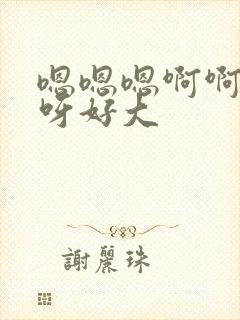 嗯嗯嗯啊啊
呀好大
謝麗珠